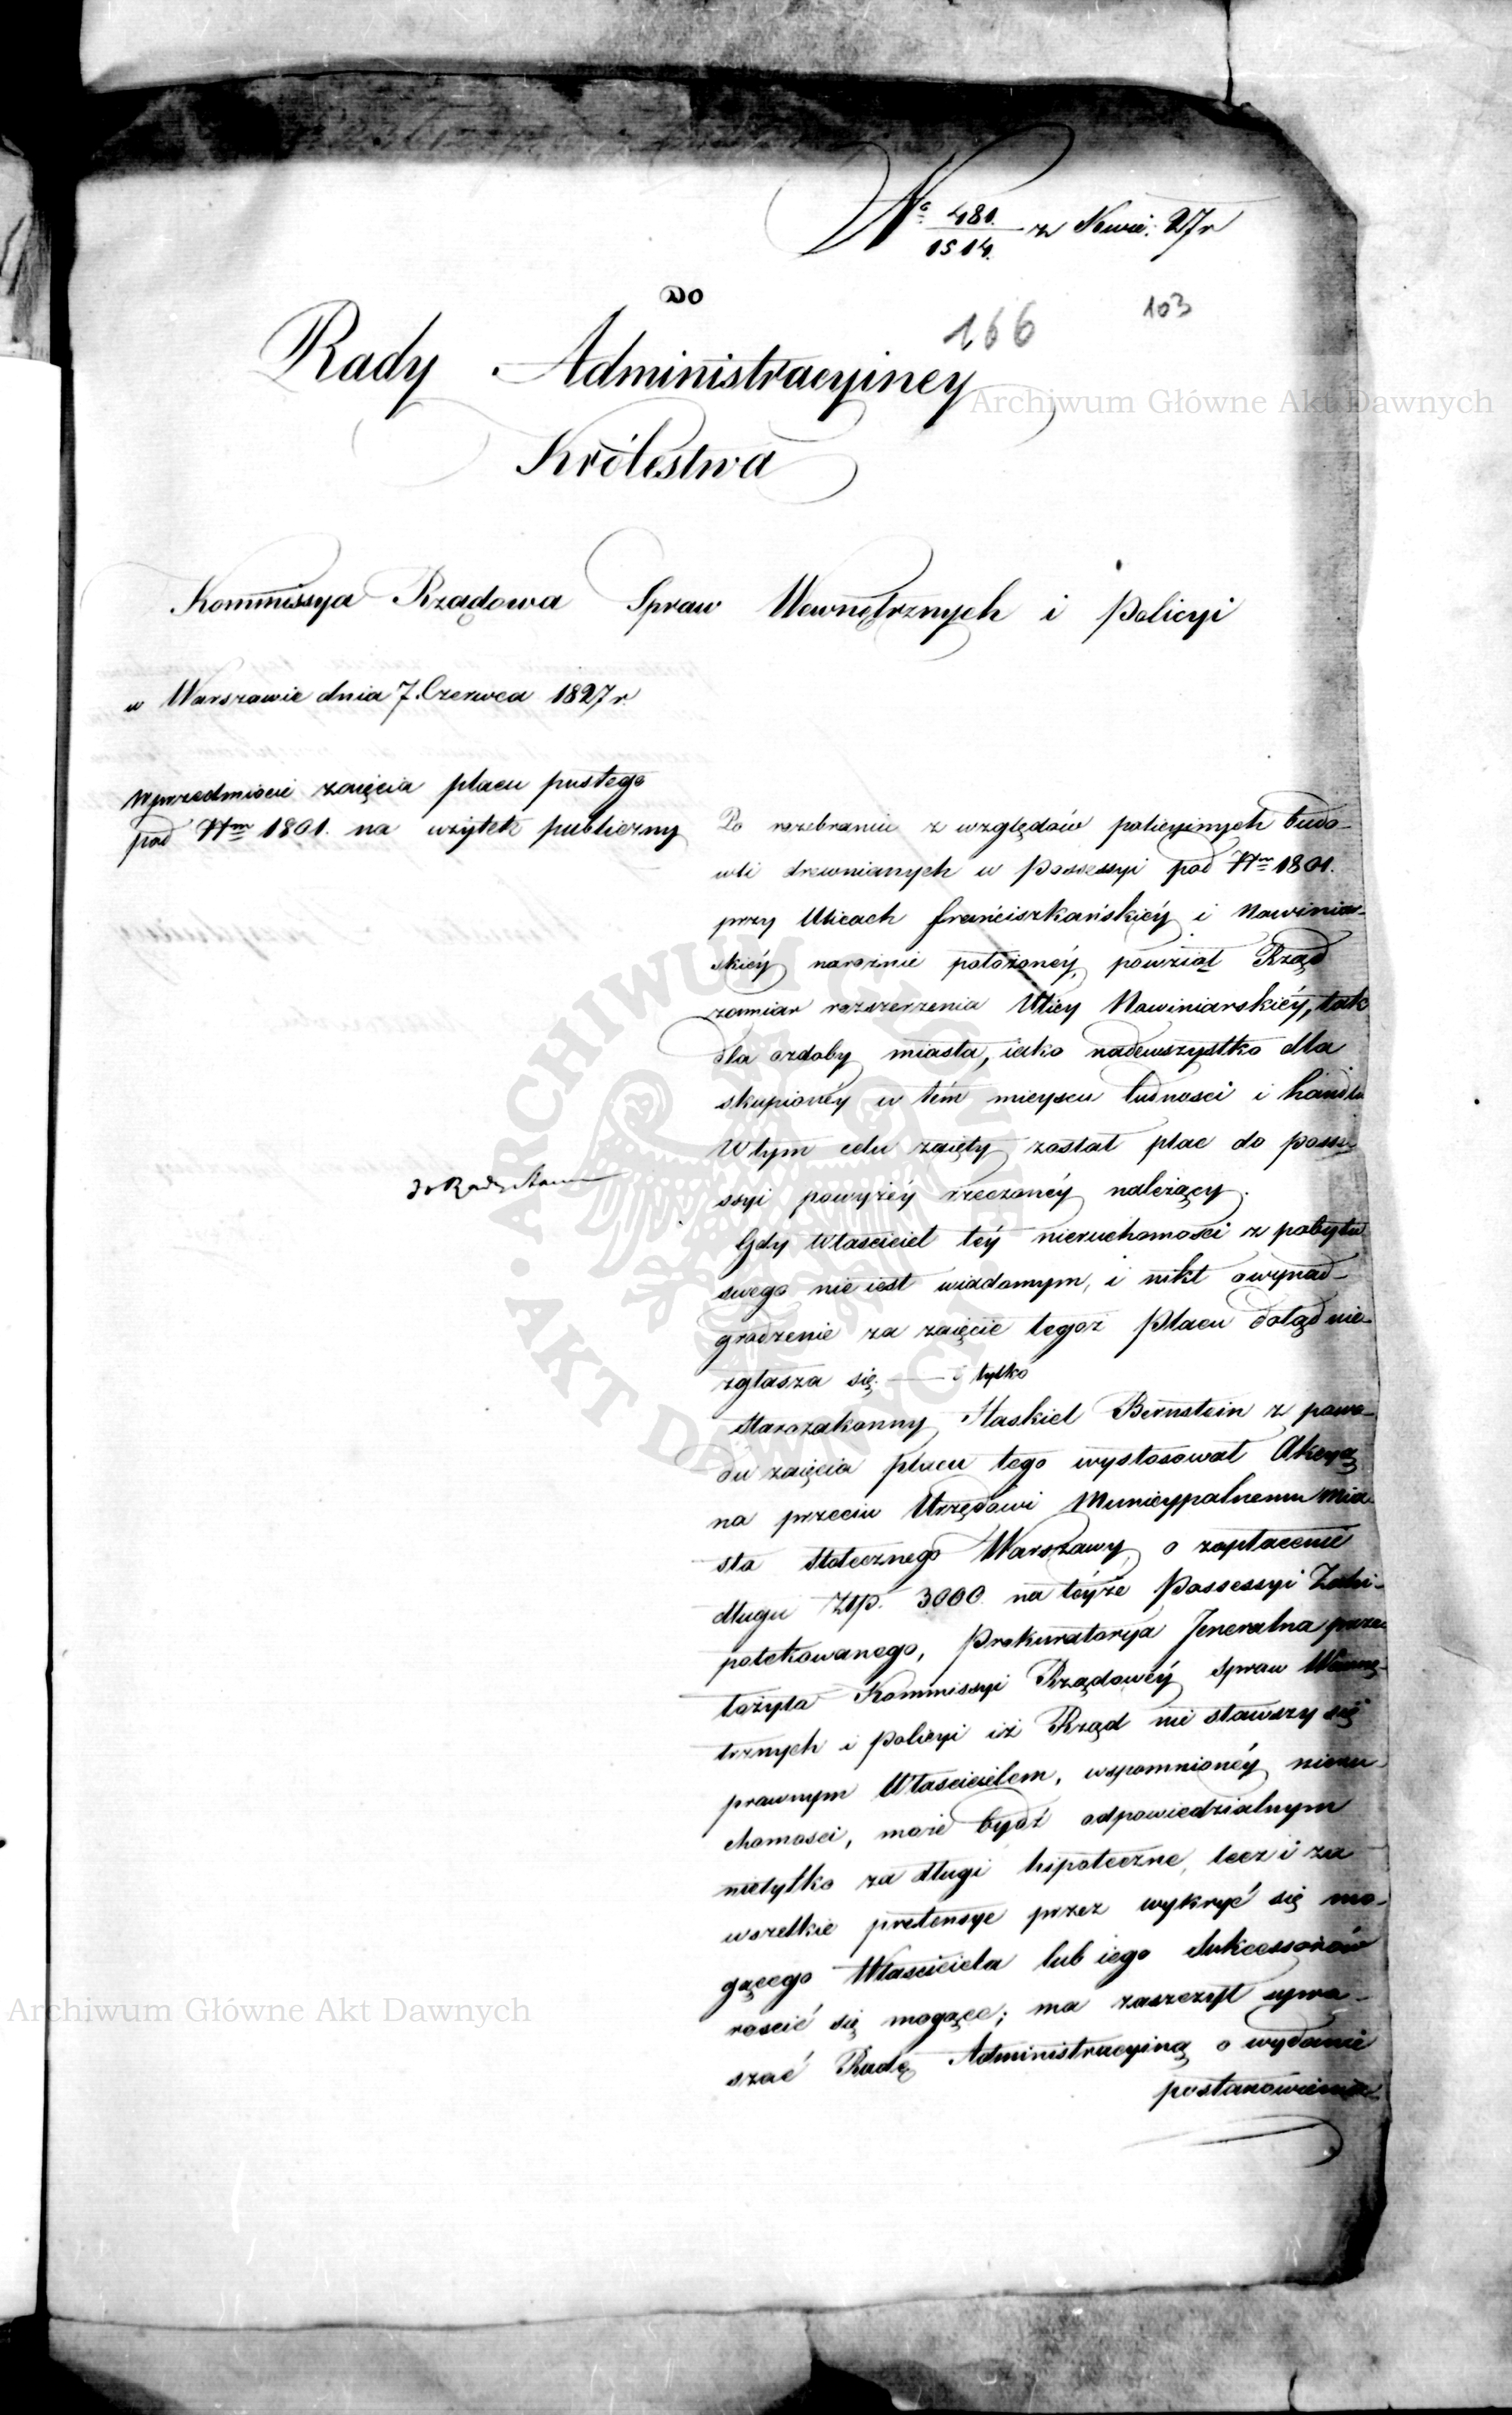 Nº 481.
1514. z Kwie: 27 r
DO
166
103
Rady Administracyiney
Królestwa
Kommissya Rządowa Spraw Wewnętrznych i Policyi
w Warszawie dnia 7. Czerwca 1827 r.
W przedmiocie zaięcia placu pustego
pod Nrm 1801. na użytek publiczny
Po rozebraniu z względów policyinych budo-
wli drewnianych w Possessyi pod Nrm 1801.
przy Ulicach Franciszkańskiéy i Nowiniar-
skiéy narożnie położonéy, powziął Rząd
zamiar rozszerzenia Ulicy Nowiniarskiéy, tak
dla ozdoby miasta, iako nadewszystko dla
skupionéy w tém mieyscu ludności i handlu
W tym celu zaięty został plac do posse-
ssyi powyżéy rzeczonéy należący.
Gdy Właściciel téy nieruchomości z pobytu
swego nie iest wiadomym, i nikt o wynad-
grodzenie za zaięcie tegoż Placu dotąd nie
zgłasza się. — i tylko
Starozakonny Haskiel Bernstein z powo-
du zaięcia placu tego wystosował Akcyą
na przeciw Urzędowi Municypalnemu Mia-
sta Stołecznego Warszawy o zapłacenie
długu Złp. 3000 na téyże Possessyi Zahi-
potekowanego, Prokuratorya Jeneralna prze-
łożyła Kommissyi Rządowéy Spraw Wewnę-
trznych i Policyi iż Rząd nie stawszy się
prawnym Właścicielem, wspomnionéy nieru-
chomości, może bydź odpowiedzialnym
nietylko za długi hipoteczne, lecz i za
wszelkie pretensye przez wykryć się mo-
gącego Właściciela lub iego Sukcessorów
rościć się mogące; ma zaszczyt upra-
szać Radę Administracyiną o wydanie
postanowienia
Archiwum Główne Akt Dawnych
ARCHIWUM GŁÓWNE • AKT DAWNYCH •
Archiwum Główne Akt Dawnych